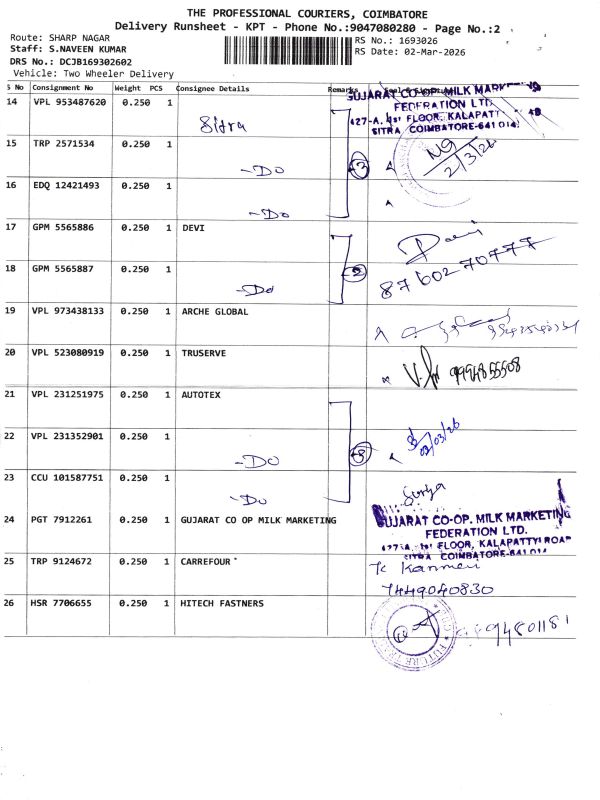 THE PROFESSIONAL COURIERS, COIMBATORE
Delivery Runsheet - KPT - Phone No.:9047080280 - Page No.:2
Route: SHARP NAGAR
RS No.: 1693026
Staff: S.NAVEEN KUMAR
RS Date: 02-Mar-2026
DRS No.: DCJB169302602
Vehicle: Two Wheeler Delivery
S No Consignment No Weight PCS Consignee Details Remarks
14 VPL 953487620 0.250 1 Sitra
GUJARAT CO-OP. MILK MARKETING
FEDERATION LTD.
427-A, 1st FLOOR, KALAPATTI
SITRA COIMBATORE-641 014
15 TRP 2571534 0.250 1 -Do 3
2/3/26
16 EDQ 12421493 0.250 1 -Do
17 GPM 5565886 0.250 1 DEVI
18 GPM 5565887 0.250 1 -Do 2 8760270777
19 VPL 973438133 0.250 1 ARCHE GLOBAL
20 VPL 523080919 0.250 1 TRUSERVE 9994855508
21 VPL 231251975 0.250 1 AUTOTEX
22 VPL 231352901 0.250 1 -Do 3 02/03/26
23 CCU 101587751 0.250 1 -Do Surya
24 PGT 7912261 0.250 1 GUJARAT CO OP MILK MARKETING
GUJARAT CO-OP. MILK MARKETING
FEDERATION LTD.
427-A, 1st FLOOR, KALAPATTY ROAD
SITRA COIMBATORE-641 014
25 TRP 9124672 0.250 1 CARREFOUR
7449040830
26 HSR 7706655 0.250 1 HITECH FASTNERS